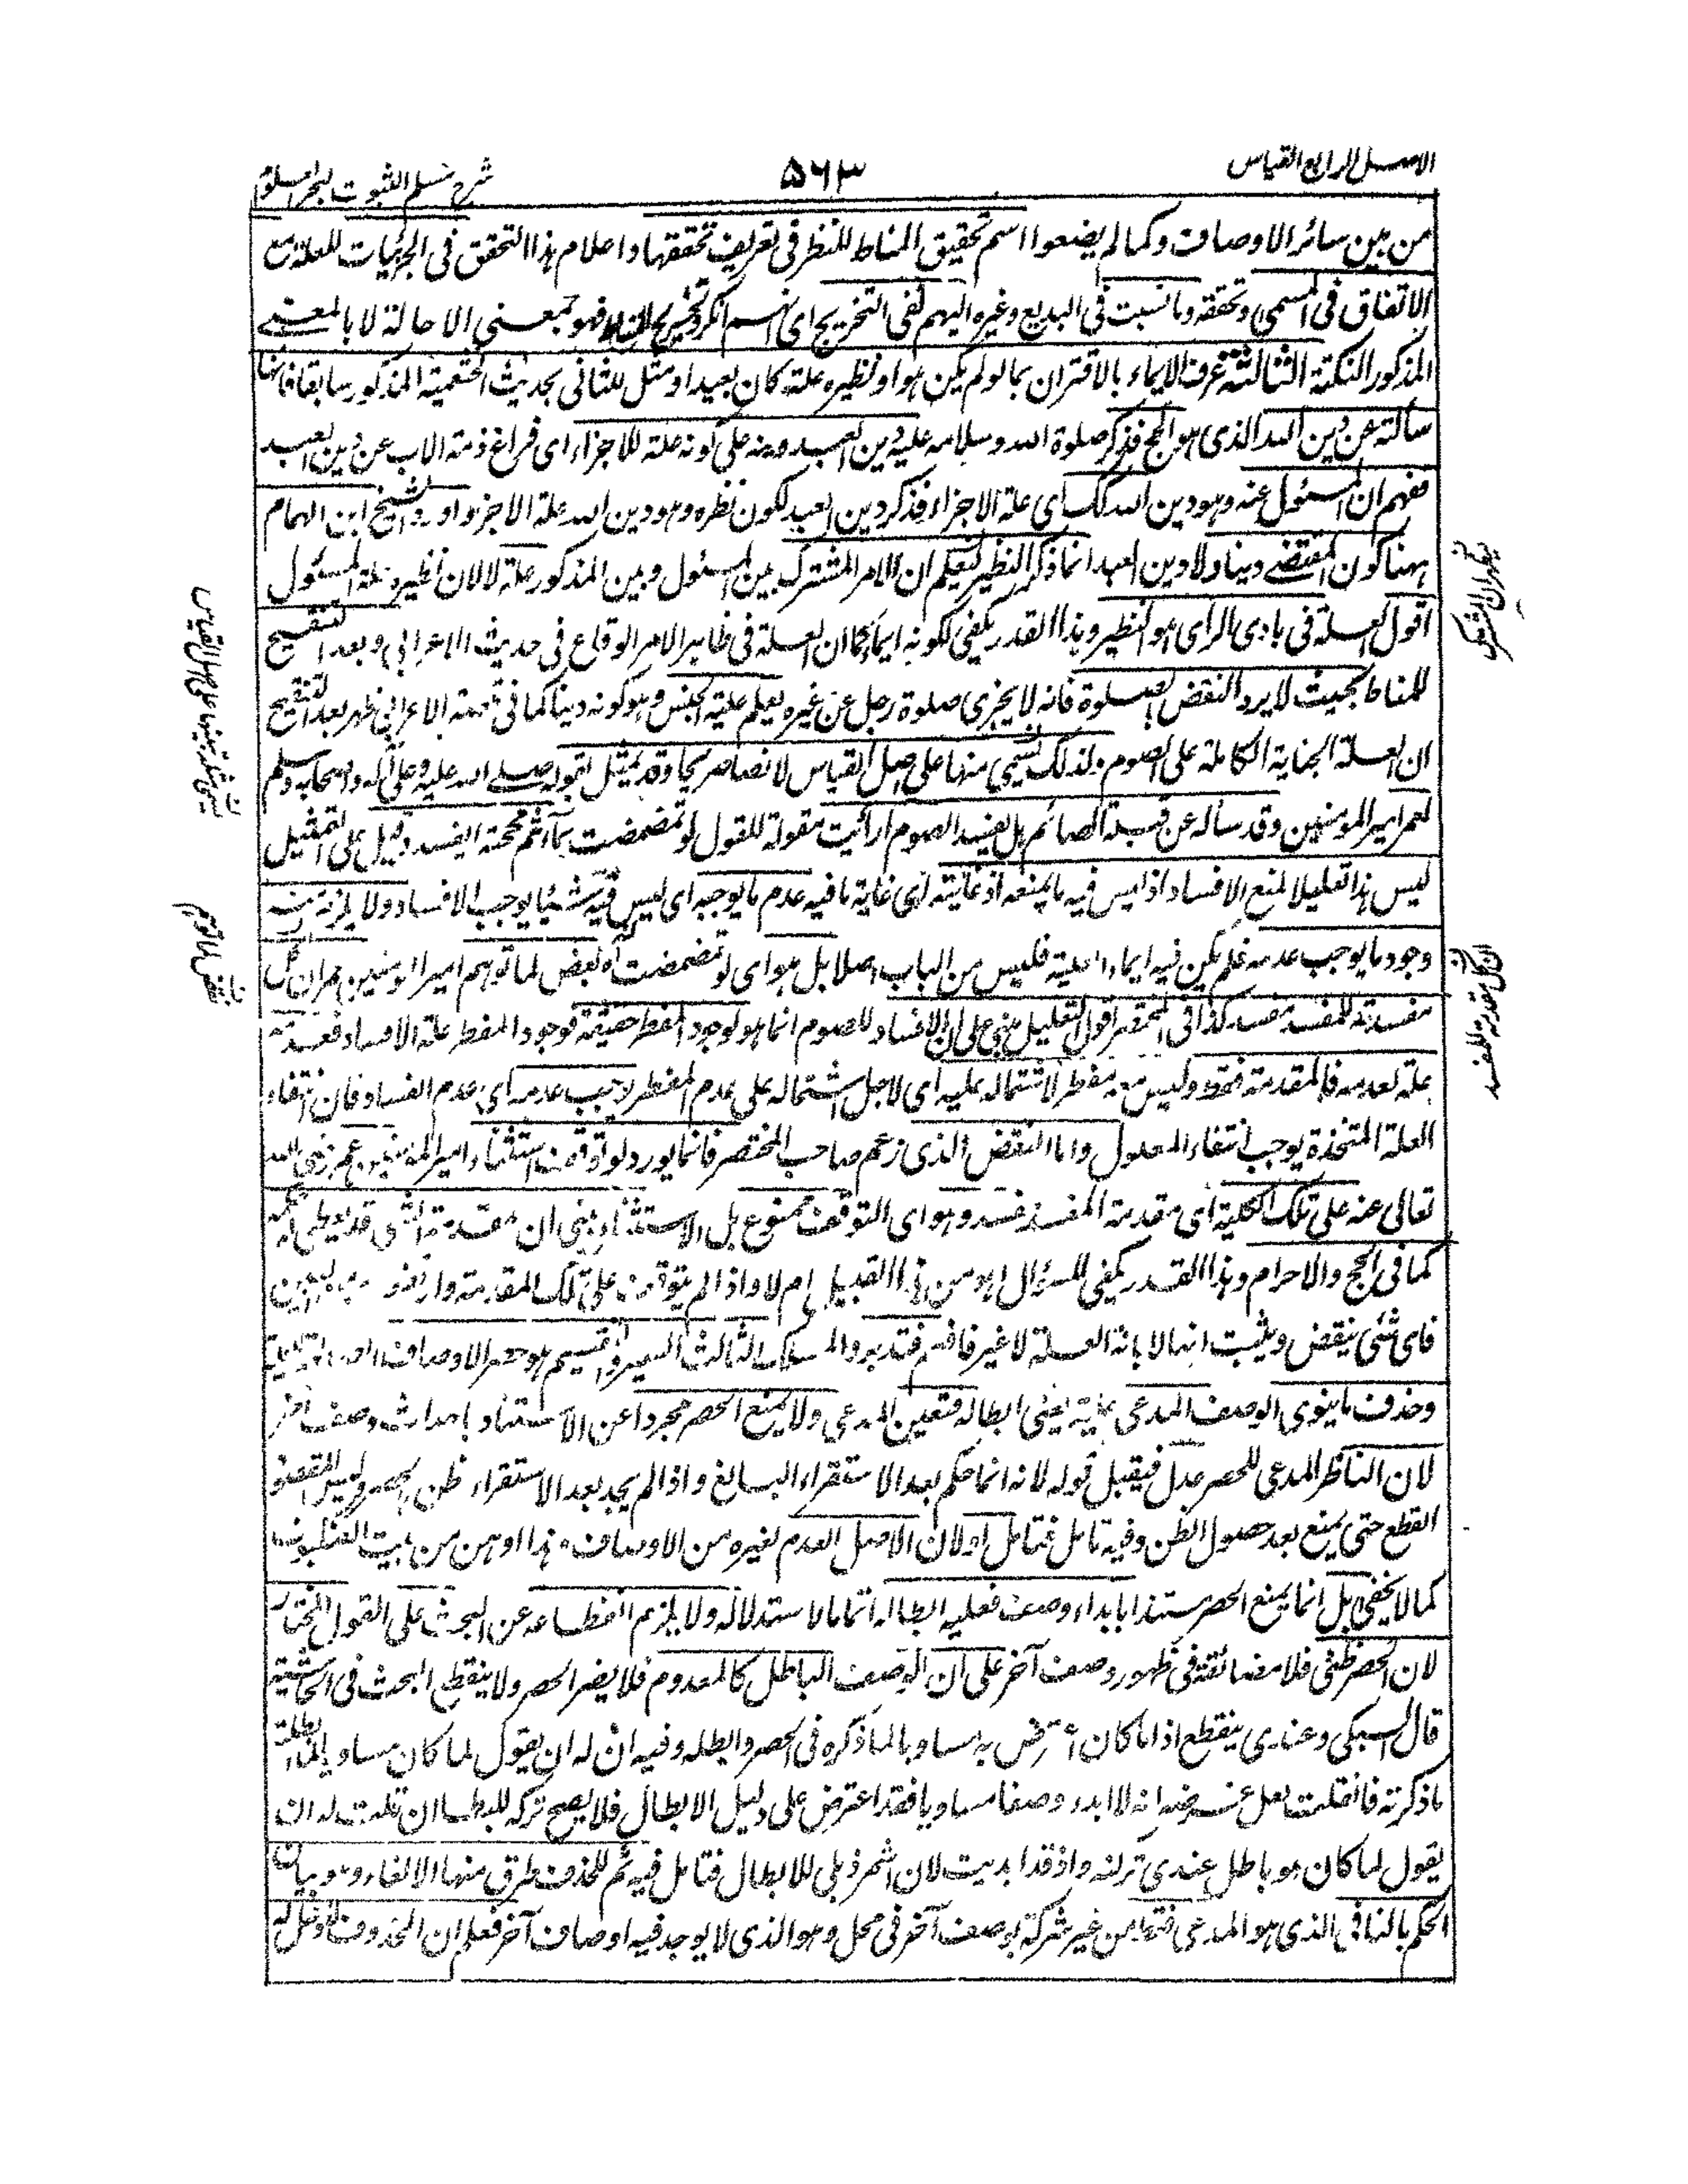 الاصل الرابع القياس
۵۶۳
شرح مسلم الثبوت لبحر العلوم
من بين سائر الاوصاف وكما لم يضعوا اسم تحقيق المناط للنظر فى تعريف تحققها واعلام هذا التحقق فى الجزئيات للعلة مع
الاتفاق فى المسمى وتحققه وما نسبت فى البديع وغيره اليهم نفى التخريج اى انهم انكروا تخريج المناط فهو بمعنى الاخالة لا بالمعنى
المذكور النكتة الثالثة عرف الايماء بالاقتران بما لو لم يكن هو او نظيره علة كان بعيدا ومثل للثانى بحديث الخثعمية المذكور سابقا فانها
سالته عن دين الله الذى هو الحج فذكر صلوة الله وسلامه عليه دين العبد ونبه على كونه علة للاجزاء اى فراغ ذمة الاب عن دين العبد
ففهم ان المسئول عنه وهو دين الله كك اى علة الاجزاء فذكر دين العبد لكون نظره وهو دين الله علة الاجزاء واورد الشيخ ابن الهمام
ههنا كون المقتضى دينا ولا دين العبد انما ذكر النظير ليعلم ان الامر المشترك بين المسئول وبين المذكور علة لا لان نظيره علة المسئول
اقول العلة فى بادى الراى هو النظير وهذا القدر يكفى لكونه ايماء كما ان العلة فى ظاهر الامر الوقاع فى حديث الاعرابى وبعد التنقيح
للمناط بحيث لا يرد النقض بالصلوة فانه لا يجزى صلوة رجل عن غيره يعلم علية الجنس وهو كونه دينا كما فى قصة الاعرابى ظهر بعد التنقيح
ان العلة الجناية الكاملة على الصوم ولذلك يسمى منها على اصل القياس لا نصا صريحا وقد يمثل بقوله صلى الله عليه وعلى آله واصحابه وسلم
لعمر امير المؤمنين وقد ساله عن قبلة الصائم هل يفسد الصوم ارأيت مقولة للقول لو تمضمضت بماء ثم مججته ايفسد دليل على التمثيل
ليس هذا تعليلا لمنع الافساد اذ ليس فيه ما يمنعه اذ غايته اى غاية ما فيه عدم ما يوجبه اى ليس فيه شئ يوجب الافساد ولا يلزم منه
وجود ما يوجب عدمه فلم يكن فيه ايماء العلية فليس من الباب اصلا بل هو اى لو تمضمضت آه نقض لما توهم امير المؤمنين عمر ان كل
مفسدة للمفسد مفسد كذا فى المختصر اقول التعليل مبنى على ان الافساد للصوم انما هو لوجود المفطر حقيقة فوجود المفطر علة الافساد فعدمه
علة لعدمه فالمقدمة فقط وليس معه مفطر لاشتماله عليه اى لاجل اشتماله على عدم المفطر لاجب عدمه اى عدم الفساد فان انتفاء
العلة المتحدة يوجب انتفاء المعلول واما النقض الذى زعم صاحب المختصر فانما يورد لو توقف استثناء امير المؤمنين عمر رضى الله
تعالى عنه على تلك الكلية اى مقدمة المفسد مفسد وهو اى التوقف ممنوع بل الاستثناء مبنى ان مقدمة الشئ قد يعطى له حكمه
كما فى الحج والاحرام وهذا القدر يكفى للسؤال اهو من هذا القبيل ام لا واذا لم يتوقف على تلك المقدمة
فاى شئ ينقض ويثبت انها لا بانة العلة لا غير فافهم فتدبر والمسلك الثالث السبر والتقسيم هو حصر الاوصاف
وحذف ما سوى الوصف المدعى علية يعنى ابطاله فتعين المدعى ولا يمنع الحصر مجردا عن الاستناد بابداء وصف آخر
لان الناظر المدعى للحصر عدل فيقبل قوله لانه انما حكم بعد الاستقراء البالغ واذا لم يجد بعد الاستقراء ظن الحصر وليس المقصود
القطع حتى يمنع بعد حصول الظن وفيه تامل فتامل او لان الاصل العدم لغيره من الاوصاف وهذا اوهن من بيت العنكبوت
كما لا يخفى بل انما يمنع الحصر مستندا بابداء وصف فعليه ابطاله اتماما لاستدلاله ولا يلزم انقطاعه عن البحث على القول المختار
لان الحصر ظنى فلا مضائقة فى ظهور وصف آخر على ان الوصف الباطل كالمعدوم فلا يضر الحصر ولا ينقطع البحث فى الحاشية
قال السبكى وعندى ينقطع اذا ما كان اعترض به مساويا لما ذكره فى الحصر وابطله وفيه ان له ان يقول لما كان مساويا لما ابطلته
ما ذكرته فان قلت لعل غرضه انه لا ابدء وصفا مساويا فقد اعترض على دليل الابطال فلا يصح تركه للبطلان قلت له ان
يقول لما كان هو باطل عندى تركته واذ قد ابديت لان اشمر ذيلى للابطال فتامل فيه ثم للحذف طرق منها الالغاء وهو بيان
الحكم بالباقى الذى هو المدعى فقط من غير شركة بوصف آخر فى محل وهو الذى لا يوجد فيه اوصاف آخر فعلم ان المحذوف